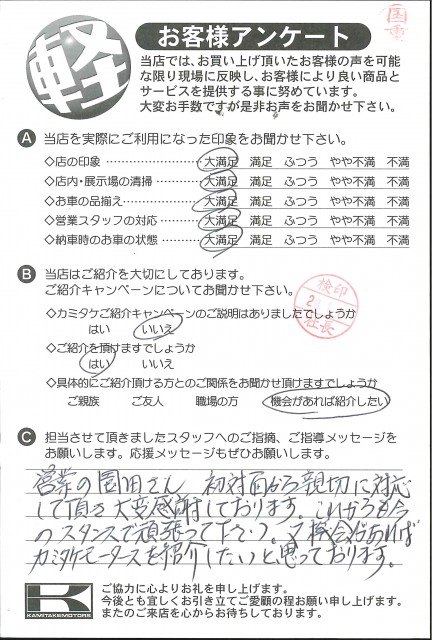 軽
お客様アンケート
当店では、お買い上げ頂いたお客様の声を可能
な限り現場に反映し、お客様により良い商品と
サービスを提供する事に努めています。
大変お手数ですが是非お声をお聞かせ下さい。
A 当店を実際にご利用になった印象をお聞かせ下さい。
◇店の印象 ‥‥‥‥‥‥‥‥ 大満足 満足 ふつう やや不満 不満
◇店内・展示場の清掃 ‥‥‥‥ 大満足 満足 ふつう やや不満 不満
◇お車の品揃え ‥‥‥‥‥‥ 大満足 満足 ふつう やや不満 不満
◇営業スタッフの対応 ‥‥‥‥ 大満足 満足 ふつう やや不満 不満
◇納車時のお車の状態 ‥‥‥‥ 大満足 満足 ふつう やや不満 不満
B 当店はご紹介を大切にしております。
ご紹介キャンペーンについてお聞かせ下さい。
◇カミタケご紹介キャンペーンのご説明はありましたでしょうか
はい いいえ
◇ご紹介を頂けますでしょうか
はい いいえ
◇具体的にご紹介頂ける方とのご関係をお聞かせ頂けますでしょうか
ご親族 ご友人 職場の方 機会があれば紹介したい
検印
社長
C 担当させて頂きましたスタッフへのご指摘、ご指導メッセージを
お願いします。応援メッセージもぜひお願いします。
営業の園田さん 初対面から親切に対応
して頂き大変感謝しております。これからも今
のスタンスで頑張って下さい。又機会があれば
カミタケモータースを紹介したいと思っております。
K
KAMITAKEMOTORS
ご協力に心よりお礼を申し上げます。
今後とも宜しくお引き立てご愛顧の程お願い申し上げます。
またのご来店を心からお待ちしております。